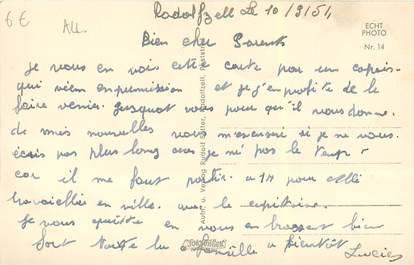 6€ All.
Radolfzell Le 10/3/54
ECHT
PHOTO
Nr. 14
Bien cher Parents
Je vous en vois cette carte par un copain
qui vien en permission et je j'en profite de le
faire venir jusquot vous pour qu'il vous donne
de mais nouvelles vous m'excuserai si je ne vous
écris pas plus long car je né pas le temps
car il me faut partir a 1H pour allé
travailler en ville avec le capitaine.
Je vous quitte en vous en brassant bien
fort toute la famille a bientôt
Lucien